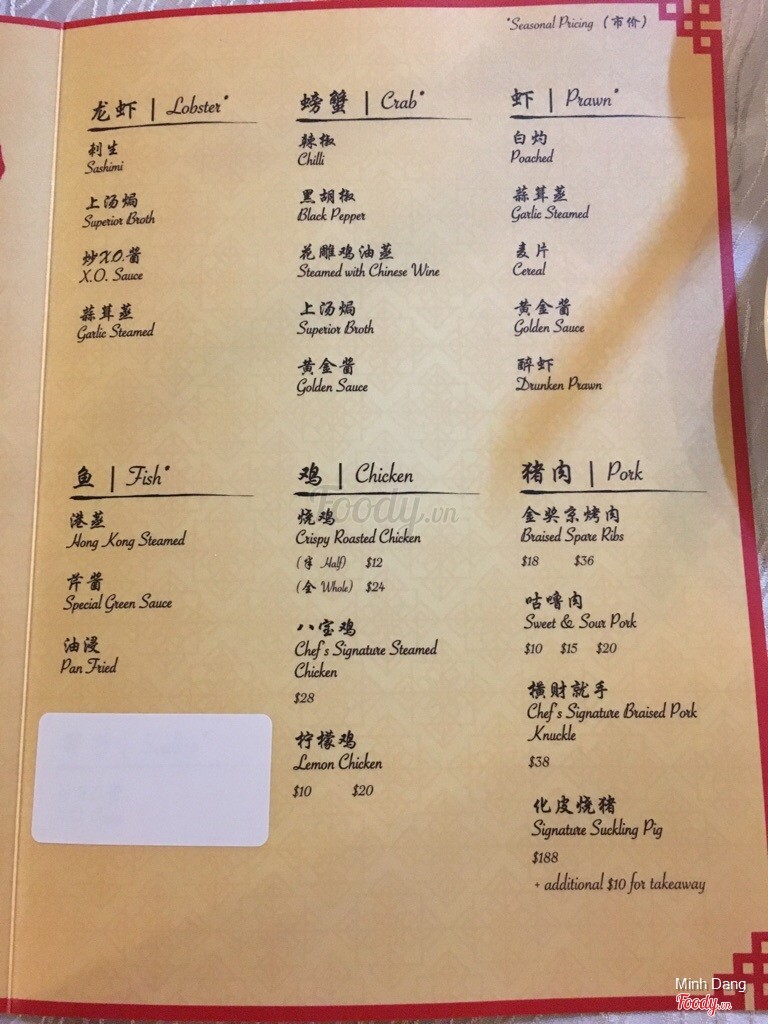 *Seasonal Pricing (市价)
龙虾 | Lobster*
刺生
Sashimi
上汤焗
Superior Broth
炒X.O.酱
X.O. Sauce
蒜茸蒸
Garlic Steamed
螃蟹 | Crab*
辣椒
Chilli
黑胡椒
Black Pepper
花雕鸡油蒸
Steamed with Chinese Wine
上汤焗
Superior Broth
黄金酱
Golden Sauce
虾 | Prawn*
白灼
Poached
蒜茸蒸
Garlic Steamed
麦片
Cereal
黄金酱
Golden Sauce
醉虾
Drunken Prawn
鱼 | Fish*
港蒸
Hong Kong Steamed
芹酱
Special Green Sauce
油浸
Pan Fried
鸡 | Chicken
烧鸡
Crispy Roasted Chicken
(半 Half) $12
(全 Whole) $24
八宝鸡
Chef's Signature Steamed
Chicken
$28
柠檬鸡
Lemon Chicken
$10 $20
猪肉 | Pork
金奖京烤肉
Braised Spare Ribs
$18 $36
咕噜肉
Sweet & Sour Pork
$10 $15 $20
横财就手
Chef's Signature Braised Pork
Knuckle
$38
化皮烧猪
Signature Suckling Pig
$188
+ additional $10 for takeaway
Foody.vn
Minh Dang
Foody.vn